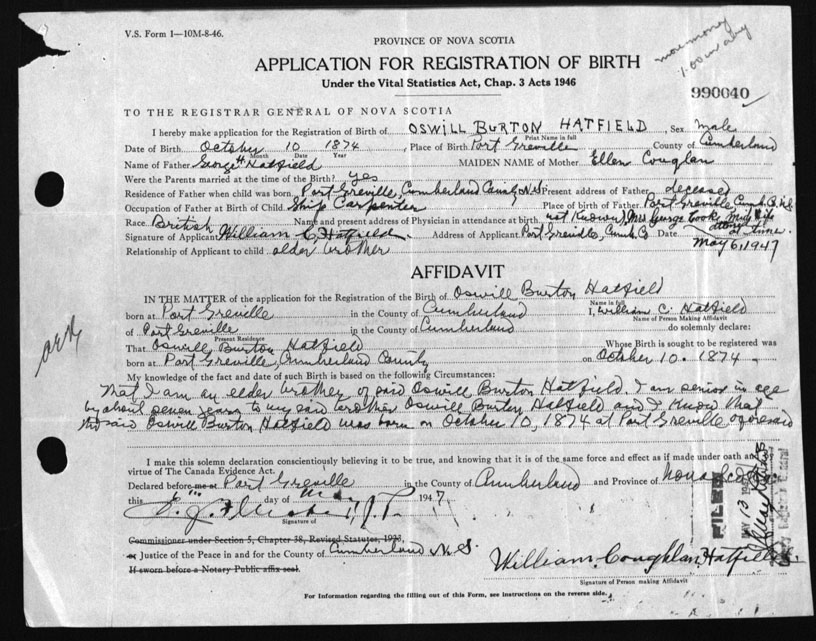 V.S. Form 1—10M-8-46.
PROVINCE OF NOVA SCOTIA
APPLICATION FOR REGISTRATION OF BIRTH
Under the Vital Statistics Act, Chap. 3 Acts 1946
990040
TO THE REGISTRAR GENERAL OF NOVA SCOTIA
I hereby make application for the Registration of Birth of OSWILL BURTON HATFIELD, Sex male
Print Name in full
Date of Birth October 10 1874, Place of Birth Port Greville County of Cumberland
Month Date Year
Name of Father George H. Hatfield MAIDEN NAME of Mother Ellen Couglan
Were the Parents married at the time of the Birth? yes
Residence of Father when child was born. Port Greville, Cumberland County N.S Present address of Father deceased
Occupation of Father at Birth of Child Ship Carpenter Place of birth of Father Port Greville Cumb. Co. N.S
Race British Name and present address of Physician in attendance at birth not Known, Mrs George Cook, Mid Wife
at time.
Signature of Applicant William C. Hatfield Address of Applicant Port Greville, Cumb. Co Date May 6, 1947
Relationship of Applicant to child older brother
AFFIDAVIT
IN THE MATTER of the application for the Registration of the Birth of Oswill Burton Hatfield
Name in full
born at Port Greville in the County of Cumberland I, William C. Hatfield
Name of Person Making Affidavit
of Port Greville in the County of Cumberland do solemnly declare:
Present Residence
That Oswill Burton Hatfield Whose Birth is sought to be registered was
born at Port Greville, Cumberland County on October 10. 1874
My knowledge of the fact and date of such Birth is based on the following Circumstances:
That I am an elder brother of said Oswill Burton Hatfield. I am senior in age
by about seven years to my said brother Oswill Burton Hatfield and I Know that
the said Oswill Burton Hatfield was born on October 10, 1874 at Port Greville aforesaid
I make this solemn declaration conscientiously believing it to be true, and knowing that it is of the same force and effect as if made under oath and by
virtue of The Canada Evidence Act.
Declared before me at Port Greville in the County of Cumberland and Province of Nova Scotia
this 6th day of May 1947
Signature of
Commissioner under Section 5, Chapter 38, Revised Statutes, 1923,
or Justice of the Peace in and for the County of Cumberland N.S.
If sworn before a Notary Public affix seal.
FILED
William Coughlan Hatfield
Signature of Person making Affidavit
For Information regarding the filling out of this Form, see instructions on the reverse side.